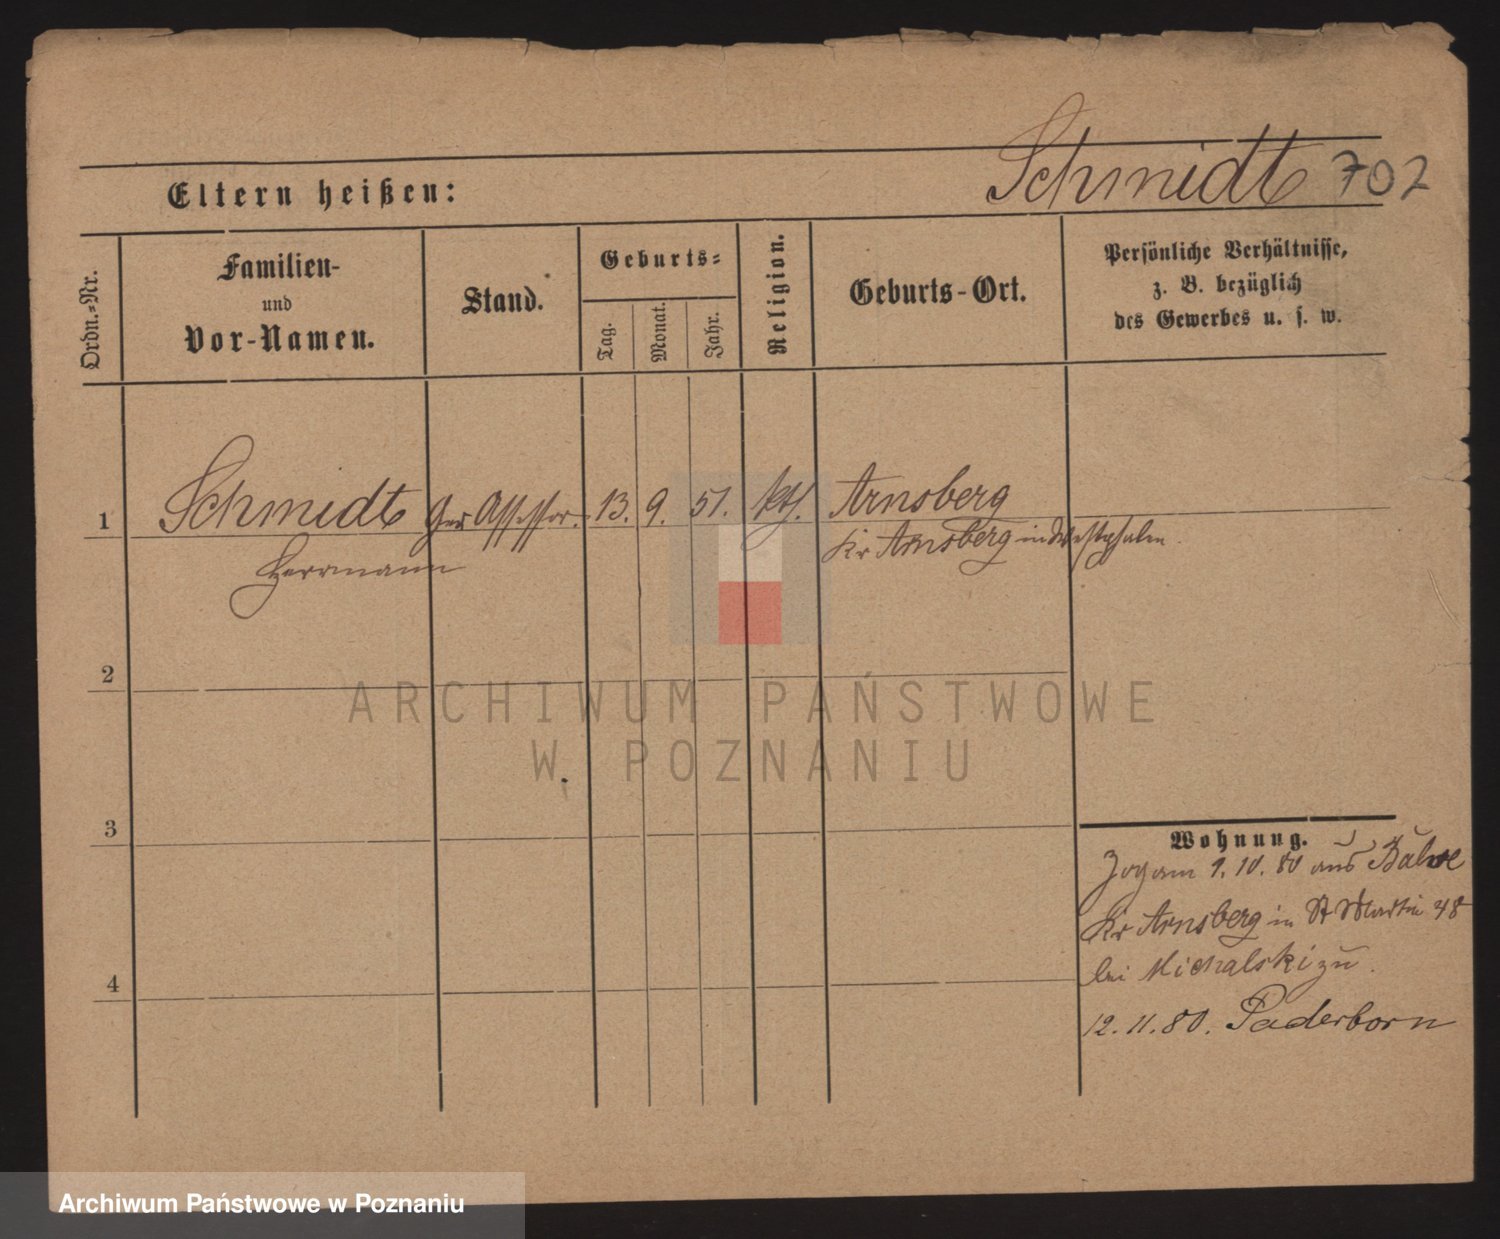 Schmidt 702
Eltern heißen:
Ordn.-Nr.
Familien-
und
Vor-Namen.
Stand.
Geburts-
Tag.
Monat.
Jahr.
Religion.
Geburts-Ort.
Persönliche Verhältnisse,
z. B. bezüglich
des Gewerbes u. s. w.
1 Schmidt Ger Assessor. 13. 9. 51. kth. Arnsberg
Herrmann Kr Arnsberg in Westphalen
2
3
4
Wohnung.
Zog am 9.10.80 aus
Kr Arnsberg in St Martin 48
bei Michalski zu.
12.11.80. Paderborn
ARCHIWUM PAŃSTWOWE
W POZNANIU
Archiwum Państwowe w Poznaniu